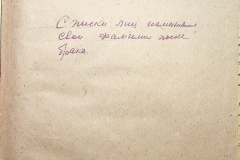 Списки лиц изменивших
свои фамилии после
брака.